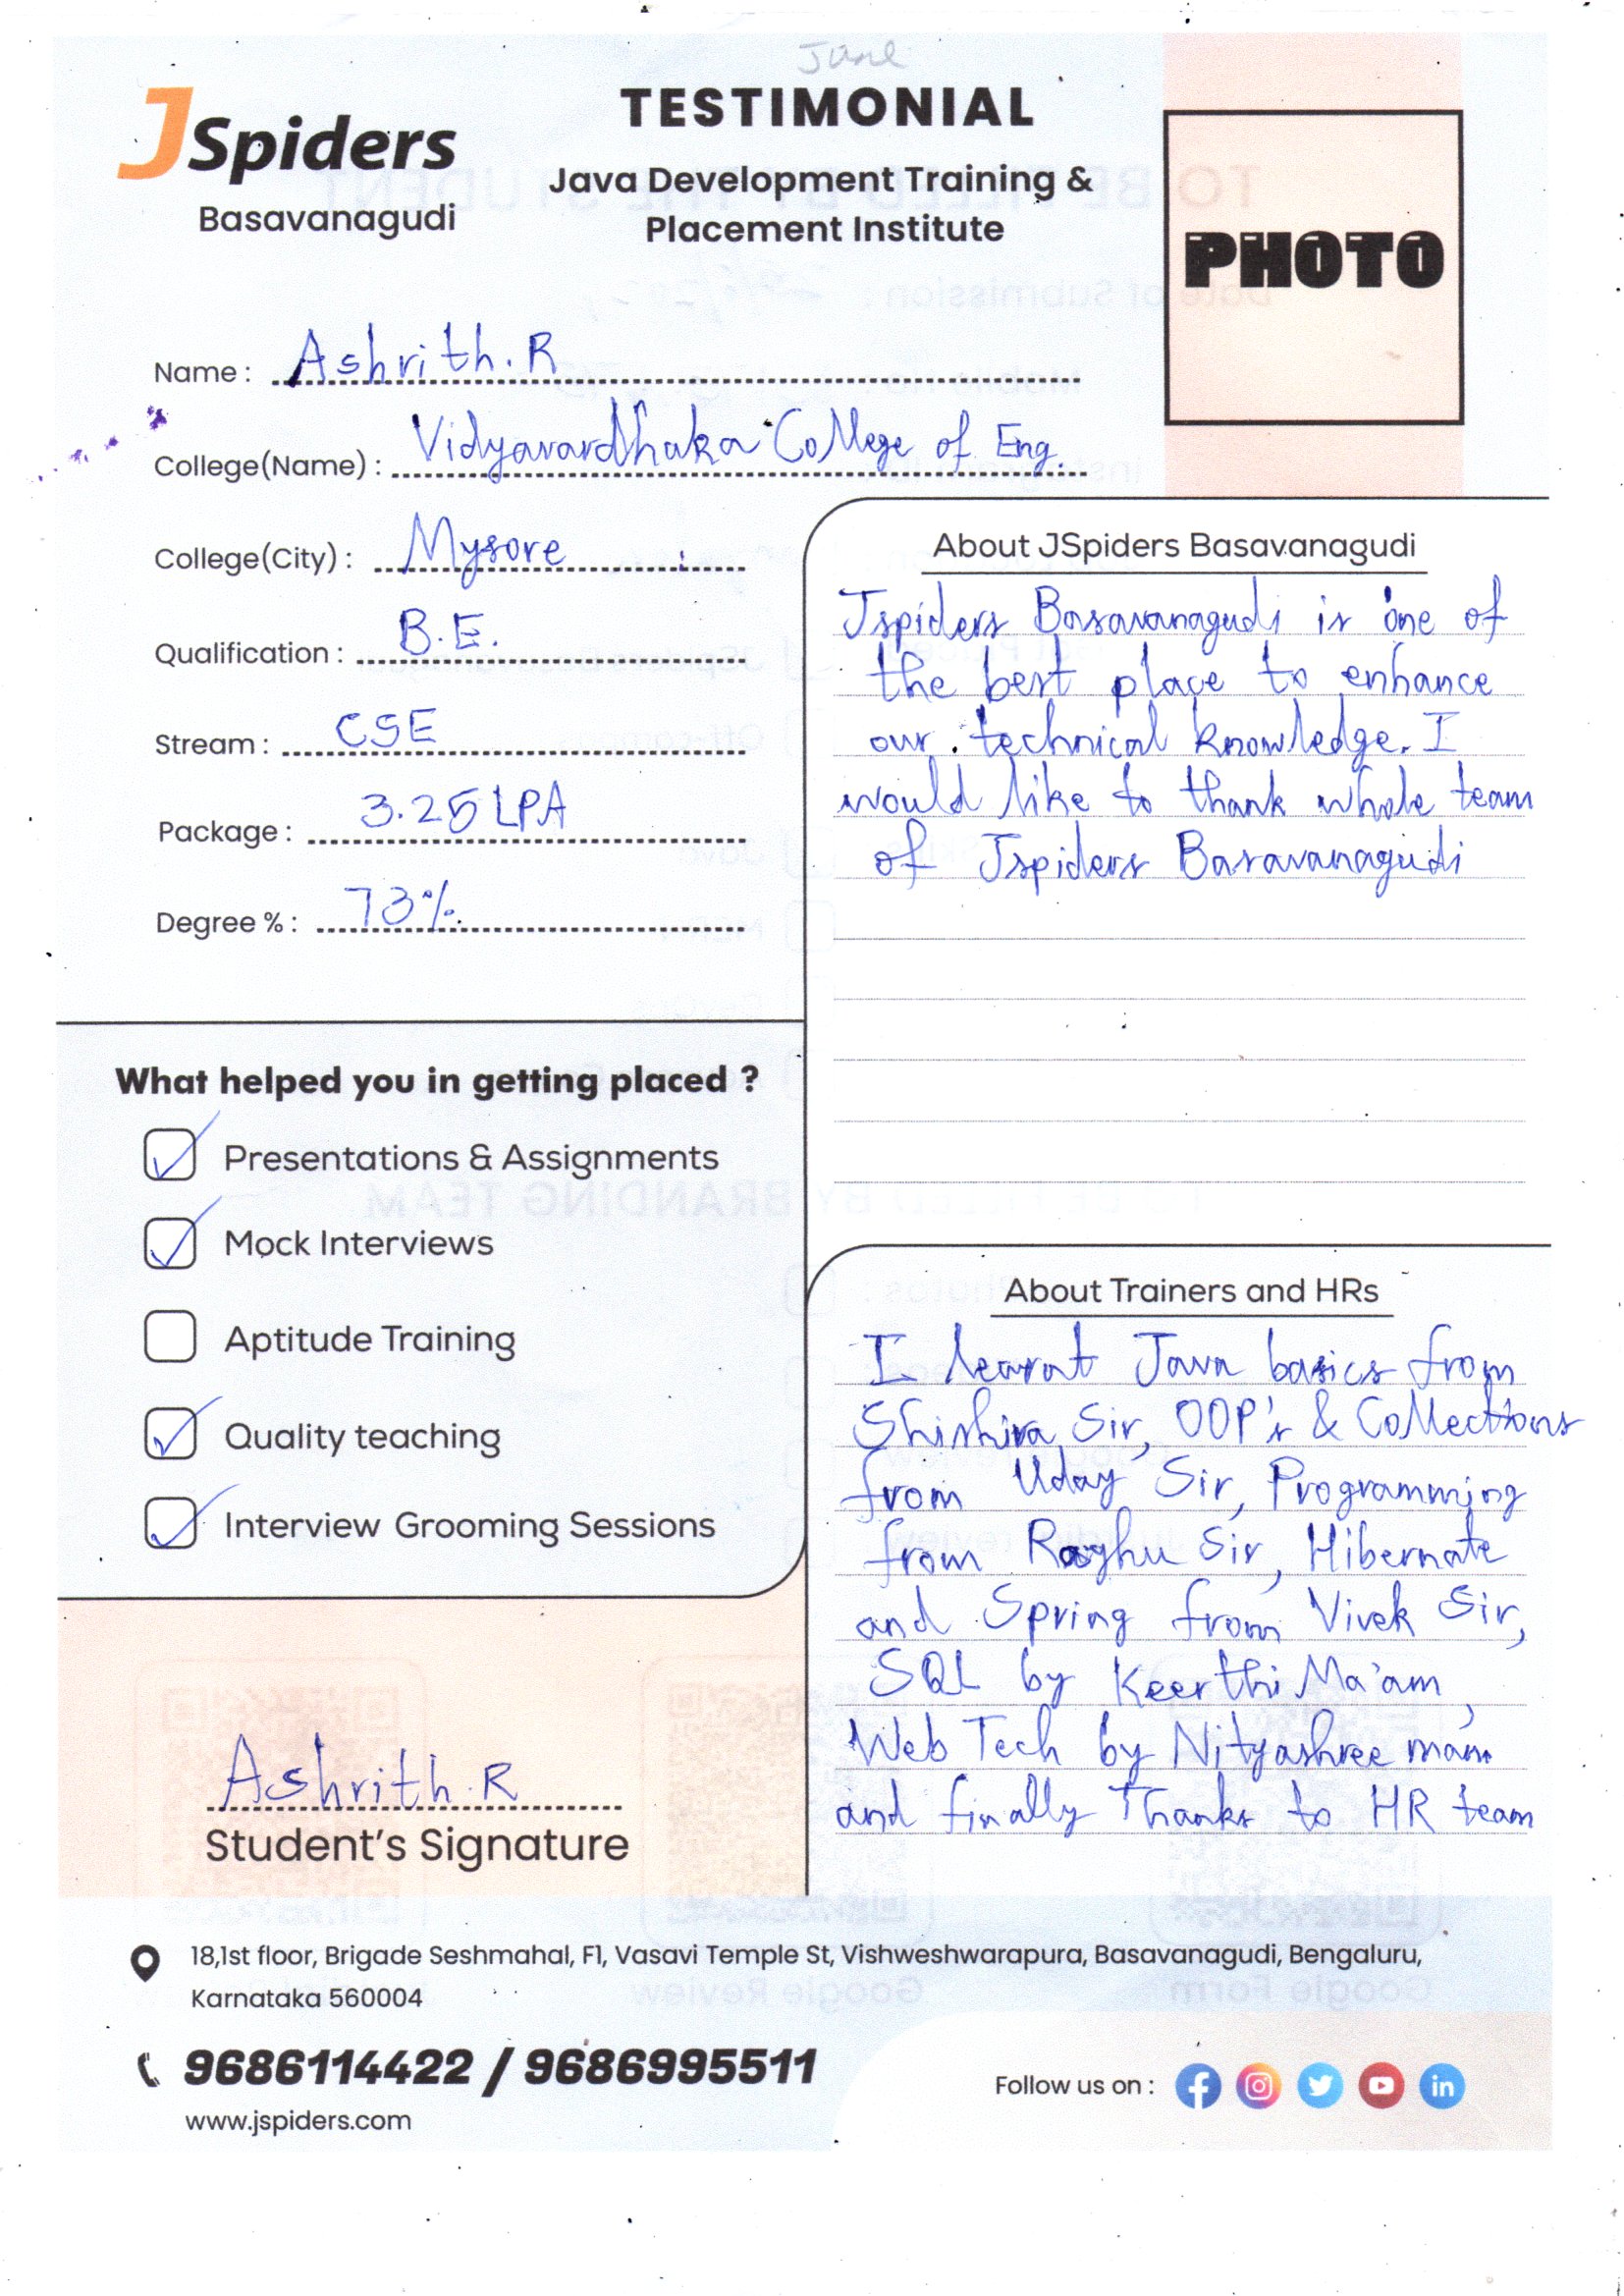 June
JSpiders
Basavanagudi
TESTIMONIAL
Java Development Training &
Placement Institute
PHOTO
Name : Ashrith. R
College(Name) : Vidyavardhaka College of Eng.
College(City) : Mysore
Qualification : B.E.
Stream : CSE
Package : 3.25 LPA
Degree % : 73%
What helped you in getting placed ?
Presentations & Assignments
Mock Interviews
Aptitude Training
Quality teaching
Interview Grooming Sessions
Ashrith. R
Student's Signature
About JSpiders Basavanagudi
Jspiders Basavanagudi is one of
the best place to enhance
our technical knowledge. I
would like to thank whole team
of Jspiders Basavanagudi
About Trainers and HRs
I learnt Java basics from
Shishira Sir, OOP's & Collections
from Uday Sir, Programming
from Raghu Sir, Hibernate
and Spring from Vivek Sir,
SQL by Keerthi Ma'am,
Web Tech by Nityashree mam
and finally Thanks to HR team
18,1st floor, Brigade Seshmahal, F1, Vasavi Temple St, Vishweshwarapura, Basavanagudi, Bengaluru,
Karnataka 560004
9686114422 / 9686995511
www.jspiders.com
Follow us on :